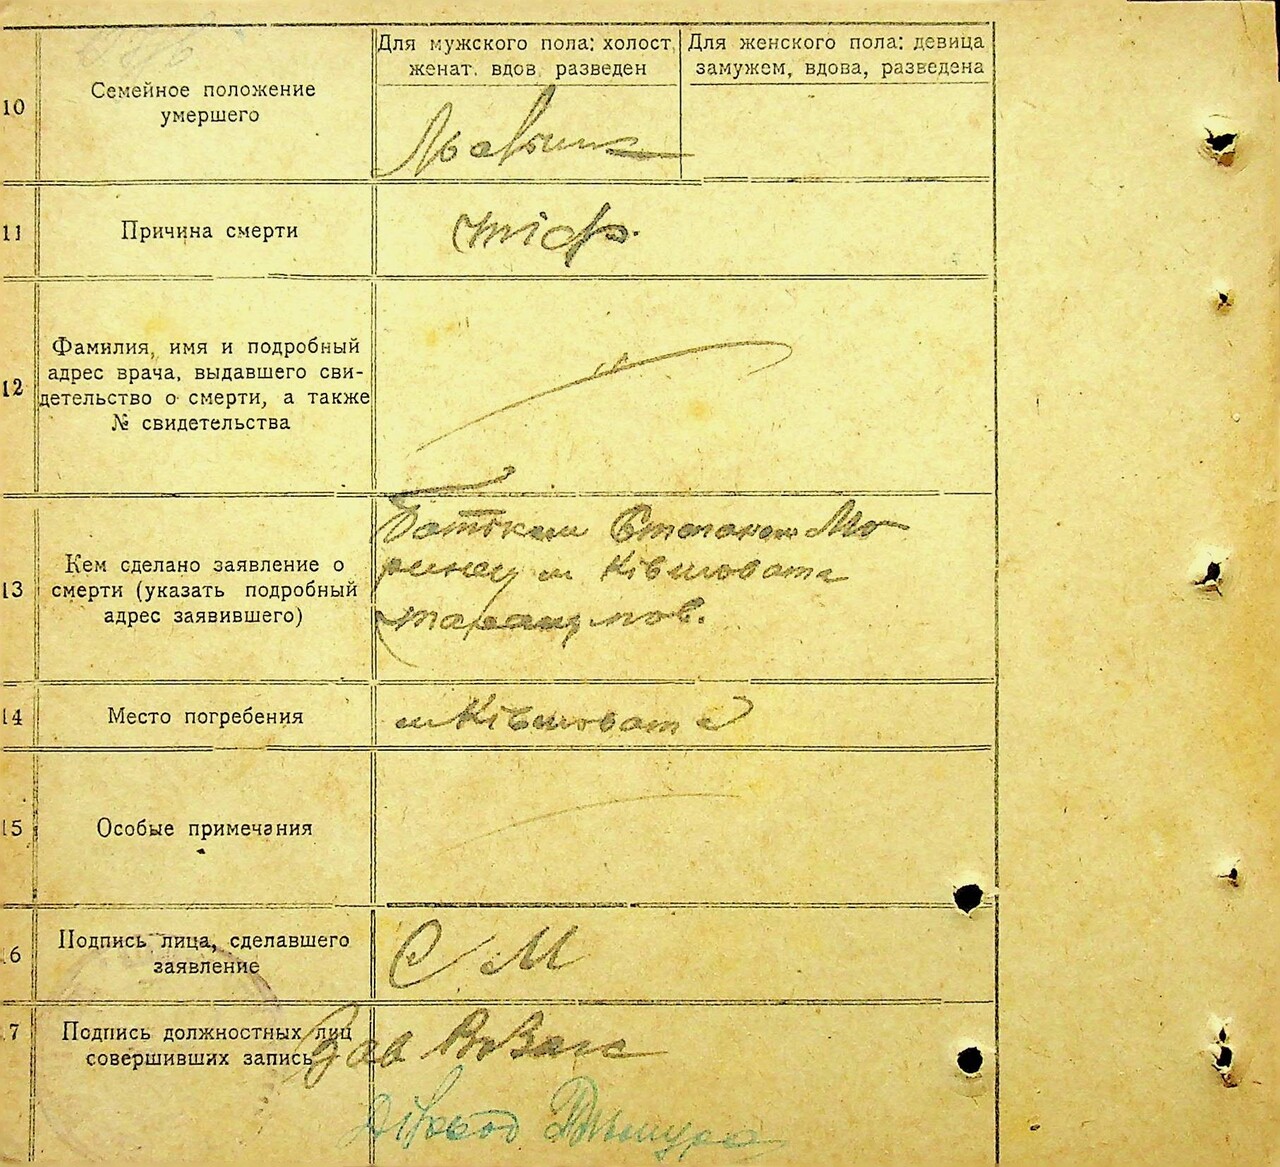 10
Семейное положение
умершего
Для мужского пола: холост,
женат, вдов, разведен
Для женского пола: девица
замужем, вдова, разведена
11
Причина смерти
тіф.
12
Фамилия, имя и подробный
адрес врача, выдавшего сви-
детельство о смерти, а также
№ свидетельства
13
Кем сделано заявление о
смерти (указать подробный
адрес заявившего)
Батьком Степаном Мо
м Ківшовата
таращ пов.
14
Место погребения
м Ківшовата
15
Особые примечания
16
Подпись лица, сделавшего
заявление
С М
17
Подпись должностных лиц
совершивших запись
Зав
Діловод